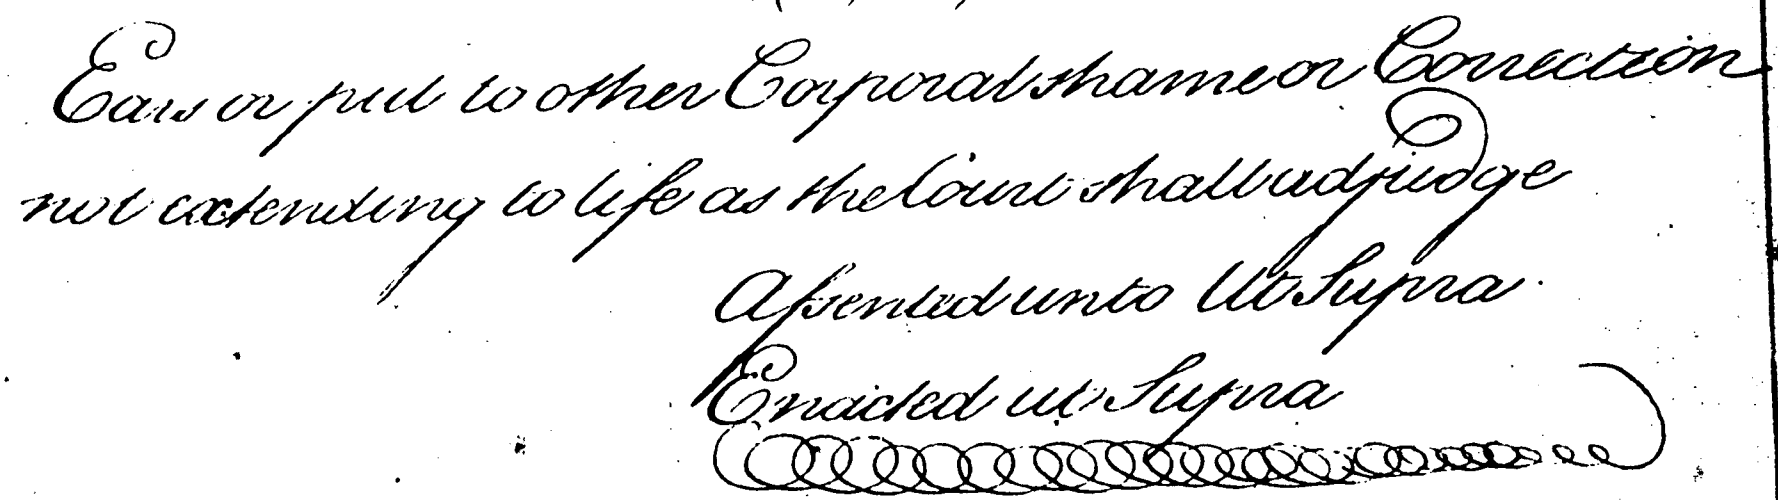 Ears or put to other Corporal shame or Correction
not extending to life as the Court shall adjudge
Assented unto Ut Supra
Enacted ut Supra